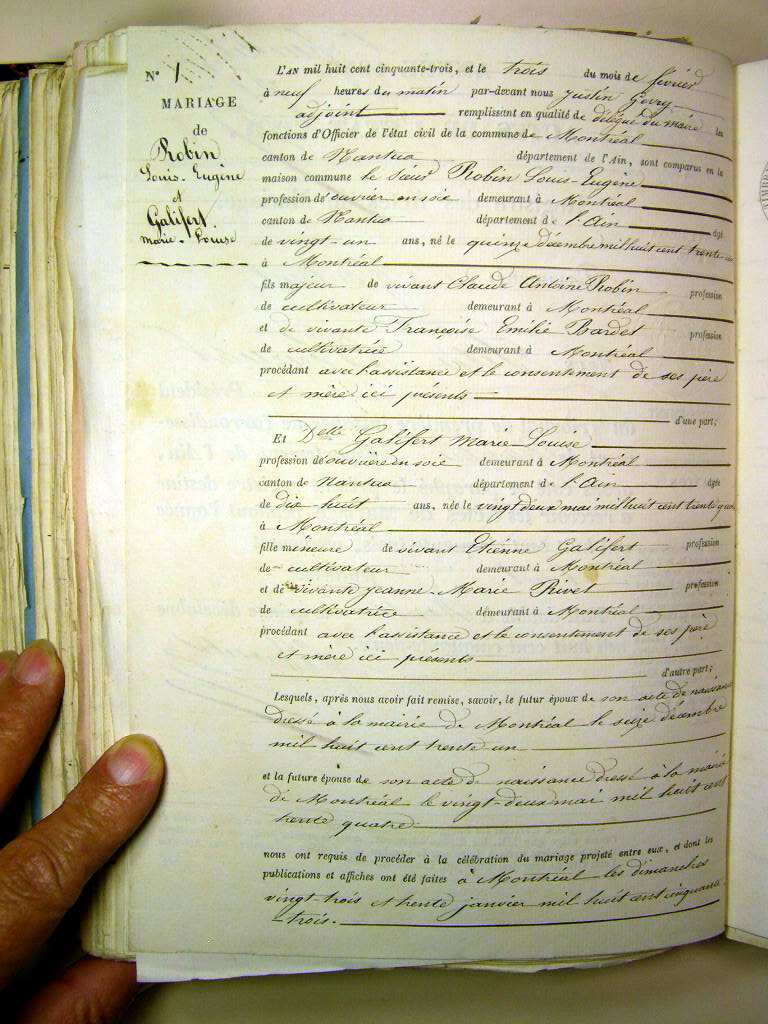 N° 1
MARIAGE
de
Robin
Louis-Eugène
et
Galifert
marie-Louise
L'AN mil huit cent cinquante-trois, et le trois du mois de février
à neuf heures du matin par-devant nous Justin
adjoint remplissant en qualité de délégué du maire les
fonctions d'Officier de l'état civil de la commune de Montréal
canton de Nantua département de l'Ain, sont comparus en la
maison commune le sieur Robin Louis-Eugène
profession de ouvrier en soie demeurant à Montréal
canton de Nantua département de l'Ain âgé
de vingt-un ans, né le quinze décembre mil huit cent trente-un
à Montréal
fils majeur de vivant Claude Antoine Robin profession
de cultivateur demeurant à Montréal
et de vivante Françoise Emilie Bardet profession
de cultivatrice demeurant à Montréal
procédant avec l'assistance et le consentement de ses père
et mère ici présents
d'une part;
Et Delle Galifert Marie-Louise
profession de ouvrière en soie demeurant à Montréal
canton de Nantua département de l'Ain âgée
de dix-huit ans, née le vingt deux mai mil huit cent trente quatre
à Montréal
fille mineure de vivant Etienne Galifert profession
de cultivateur demeurant à Montréal
et de vivante Jeanne-Marie Rivet profession
de cultivatrice demeurant à Montréal
procédant avec l'assistance et le consentement de ses père
et mère ici présents
d'autre part;
Lesquels, après nous avoir fait remise, savoir, le futur époux de son acte de naissance
dressé à la mairie de Montréal le seize décembre
mil huit cent trente un
et la future épouse de son acte de naissance dressé à la mairie
de Montréal le vingt-deux mai mil huit cent
trente quatre
nous ont requis de procéder à la célébration du mariage projeté entre eux, et dont les
publications et affiches ont été faites à Montréal les dimanches
vingt-trois et trente janvier mil huit cent cinquante
-trois.